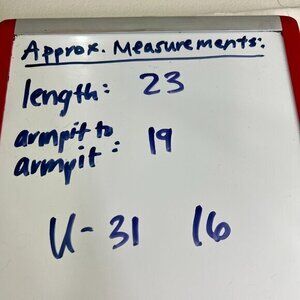 Approx. Measurements:
length: 23
armpit to
armpit: 19
U-31 16